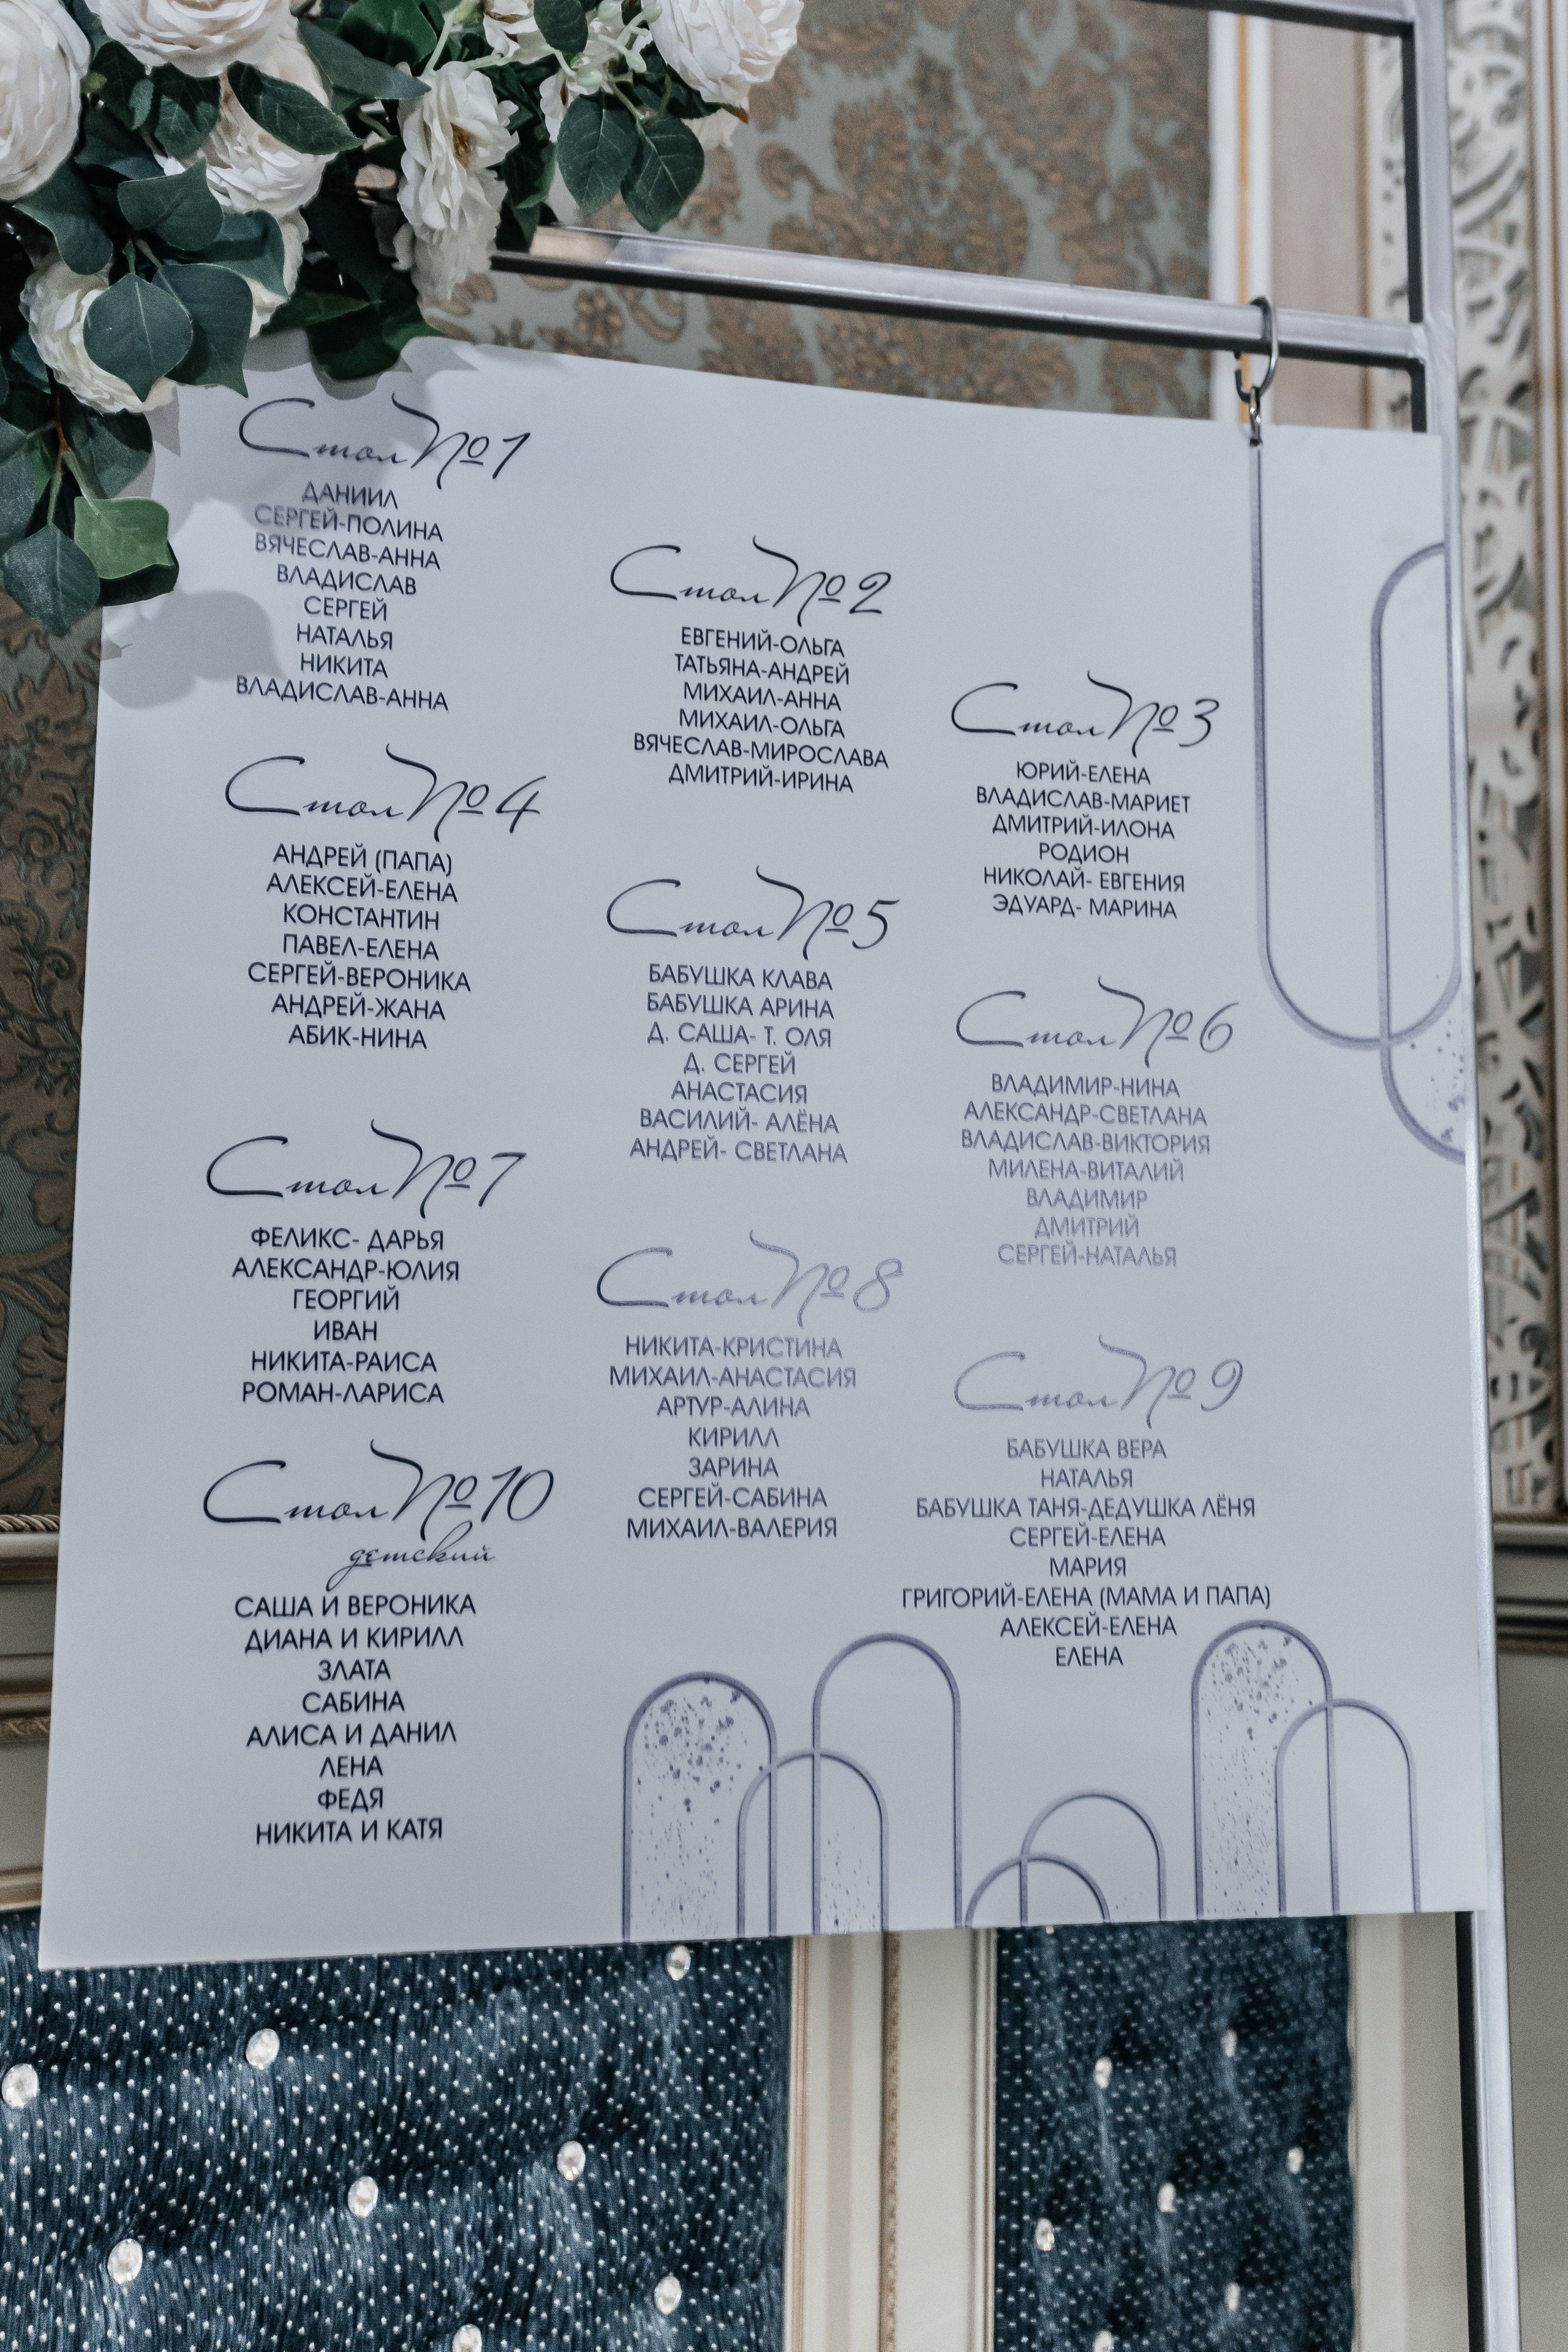 Стол №1
ДАНИИЛ
СЕРГЕЙ-ПОЛИНА
ВЯЧЕСЛАВ-АННА
ВЛАДИСЛАВ
СЕРГЕЙ
НАТАЛЬЯ
НИКИТА
ВЛАДИСЛАВ-АННА
Стол №2
ЕВГЕНИЙ-ОЛЬГА
ТАТЬЯНА-АНДРЕЙ
МИХАИЛ-АННА
МИХАИЛ-ОЛЬГА
ВЯЧЕСЛАВ-МИРОСЛАВА
ДМИТРИЙ-ИРИНА
Стол №3
ЮРИЙ-ЕЛЕНА
ВЛАДИСЛАВ-МАРИЕТ
ДМИТРИЙ-ИЛОНА
РОДИОН
НИКОЛАЙ- ЕВГЕНИЯ
ЭДУАРД- МАРИНА
Стол №4
АНДРЕЙ (ПАПА)
АЛЕКСЕЙ-ЕЛЕНА
КОНСТАНТИН
ПАВЕЛ-ЕЛЕНА
СЕРГЕЙ-ВЕРОНИКА
АНДРЕЙ-ЖАНА
АБИК-НИНА
Стол №5
БАБУШКА КЛАВА
БАБУШКА АРИНА
Д. САША- Т. ОЛЯ
Д. СЕРГЕЙ
АНАСТАСИЯ
ВАСИЛИЙ- АЛЁНА
АНДРЕЙ- СВЕТЛАНА
Стол №6
ВЛАДИМИР-НИНА
АЛЕКСАНДР-СВЕТЛАНА
ВЛАДИСЛАВ-ВИКТОРИЯ
МИЛЕНА-ВИТАЛИЙ
ВЛАДИМИР
ДМИТРИЙ
СЕРГЕЙ-НАТАЛЬЯ
Стол №7
ФЕЛИКС- ДАРЬЯ
АЛЕКСАНДР-ЮЛИЯ
ГЕОРГИЙ
ИВАН
НИКИТА-РАИСА
РОМАН-ЛАРИСА
Стол №8
НИКИТА-КРИСТИНА
МИХАИЛ-АНАСТАСИЯ
АРТУР-АЛИНА
КИРИЛЛ
ЗАРИНА
СЕРГЕЙ-САБИНА
МИХАИЛ-ВАЛЕРИЯ
Стол №9
БАБУШКА ВЕРА
НАТАЛЬЯ
БАБУШКА ТАНЯ-ДЕДУШКА ЛЁНЯ
СЕРГЕЙ-ЕЛЕНА
МАРИЯ
ГРИГОРИЙ-ЕЛЕНА (МАМА И ПАПА)
АЛЕКСЕЙ-ЕЛЕНА
ЕЛЕНА
Стол №10
детский
САША И ВЕРОНИКА
ДИАНА И КИРИЛЛ
ЗЛАТА
САБИНА
АЛИСА И ДАНИЛ
ЛЕНА
ФЕДЯ
НИКИТА И КАТЯ